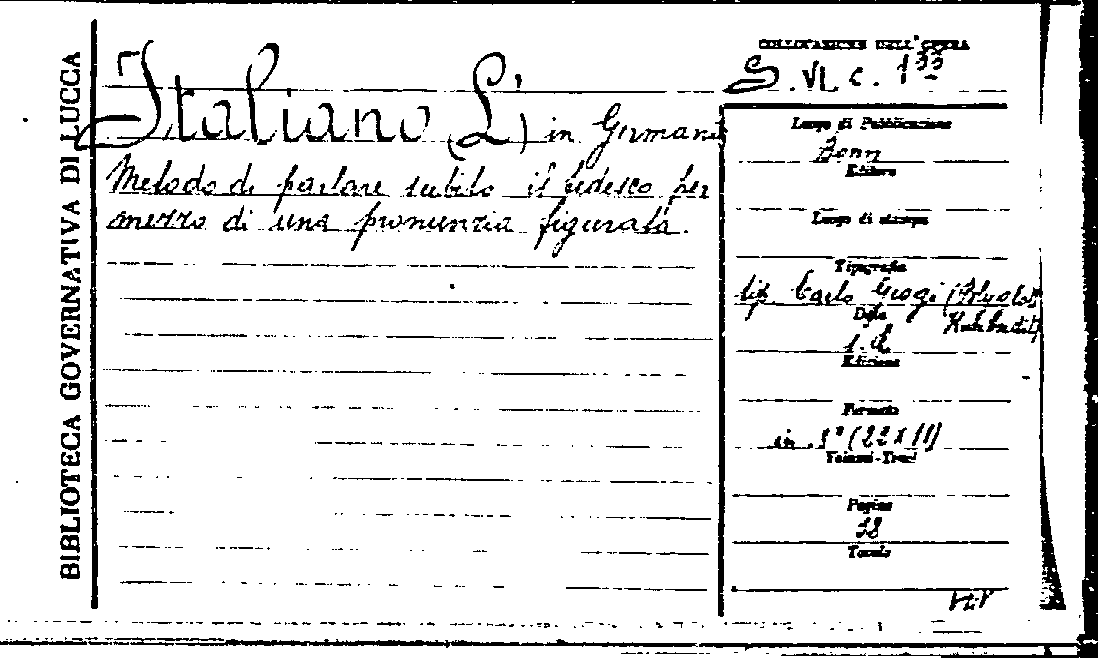 BIBLIOTECA GOVERNATIVA DI LUCCA
Italiano (L') in Germania
Metodo di parlare subito il tedesco per
mezzo di una pronunzia figurata.
COLLOCAZIONE DELL'OPERA
S. VI. C. 133
Luogo di Pubblicazione
Bonn
Editore
Luogo di stampa
Tipografia
tip. Carlo Georgi
Data
s. d.
Edizione
Formato
in 8° (22 x 11)
Volumi-Tomi
Pagine
Tavole